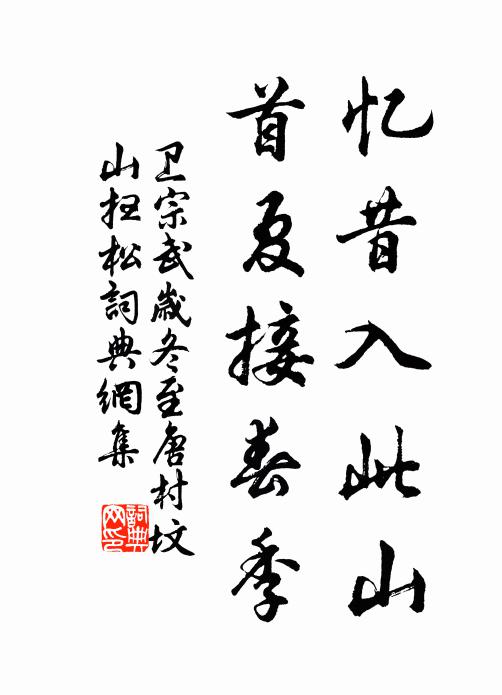 忆昔入此山
首夏接春季
卫宗武歲冬至唐村坟
山拄松詞典網集
詞典网印